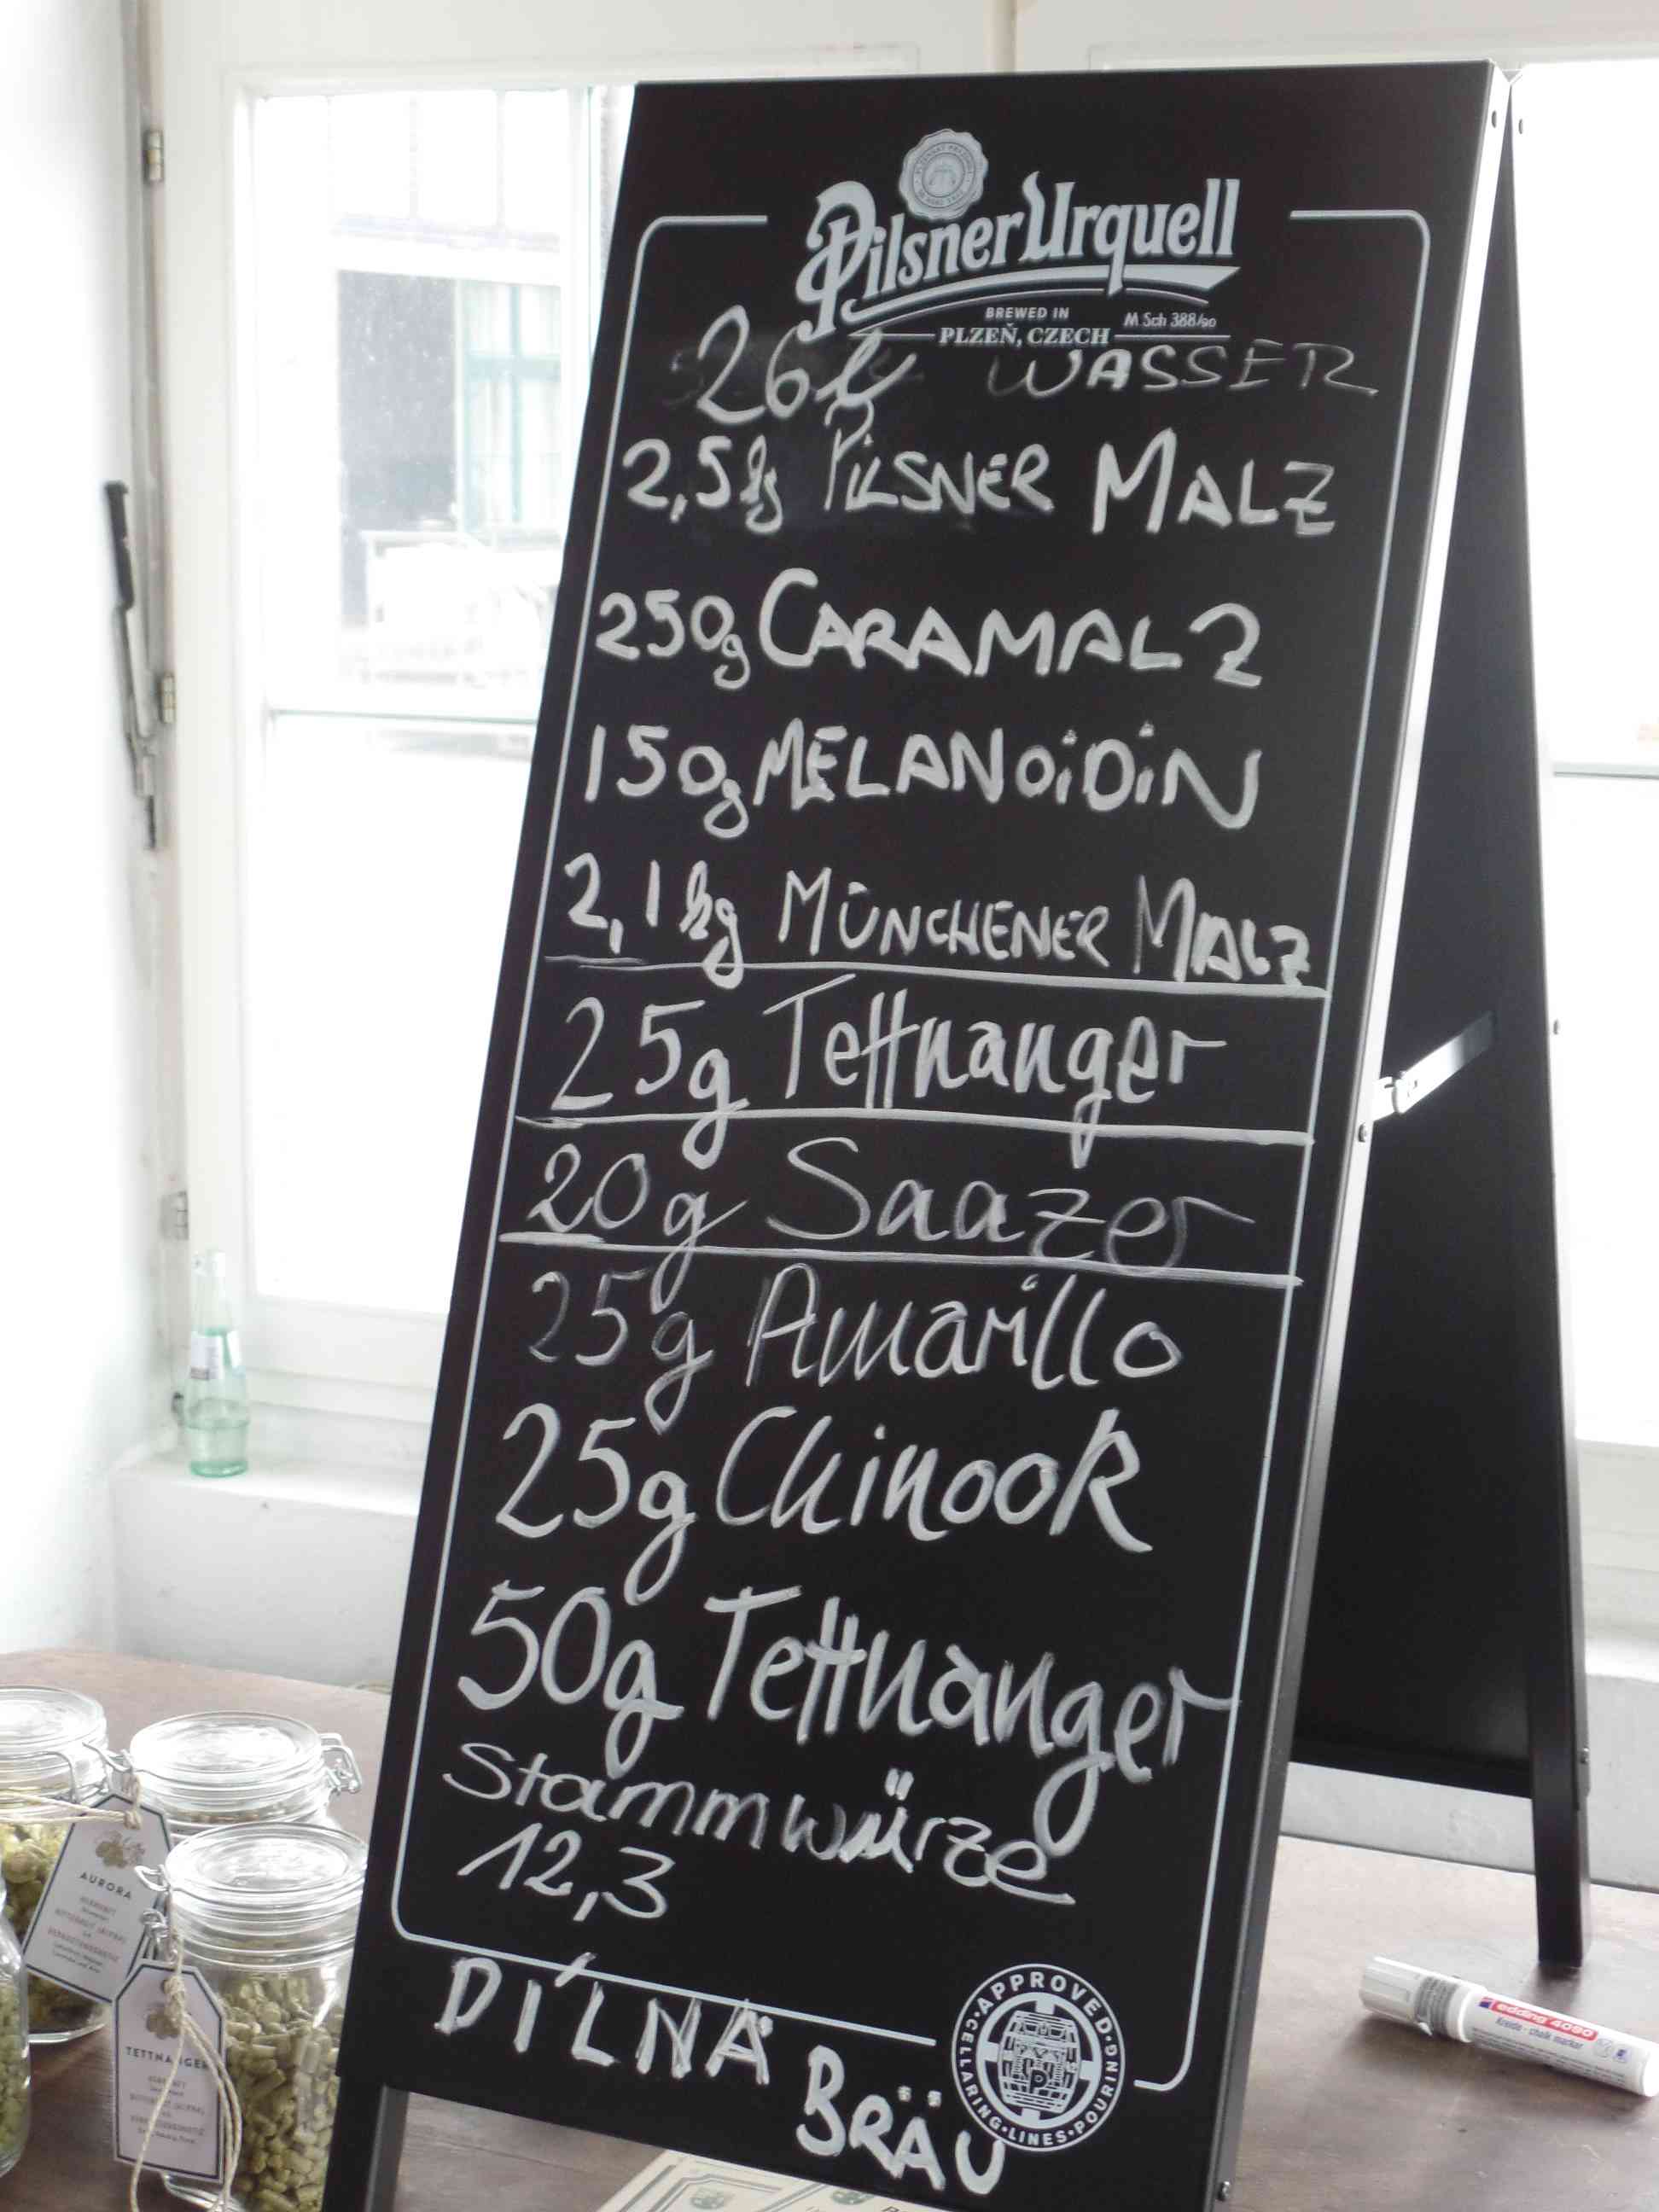 Pilsner Urquell
BREWED IN
PLZEŇ, CZECH
M Sch 388/90
26 l WASSER
2,5 kg PILSNER MALZ
250g CARAMALZ
150g MELANOiDiN
2,1 kg MÜNCHENER MALZ
25g Tettnanger
20g Saazer
25g Amarillo
25g Chinook
50g Tettnanger
Stammwürze
12,3
DÍLNA
BRÄU
APPROVED
CELLARING • LINES • POURING
AURORA
TETTNANGER
edding 4090
Kreide - chalk marker